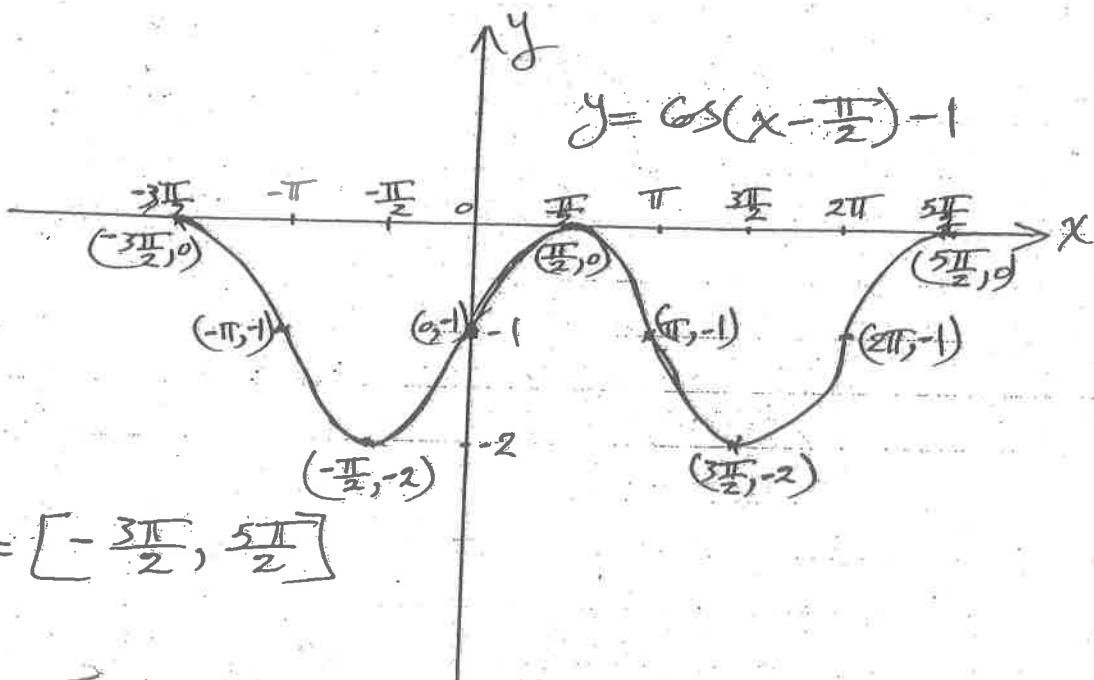 y
y = cos(x - π/2) - 1
-3π/2 -π -π/2 0 π/2 π 3π/2 2π 5π/2 x
(-3π/2, 0) (π/2, 0) (5π/2, 0)
(-π, -1) (0, -1) -1 (π, -1) (2π, -1)
-2
(-π/2, -2) (3π/2, -2)
= [-3π/2, 5π/2]